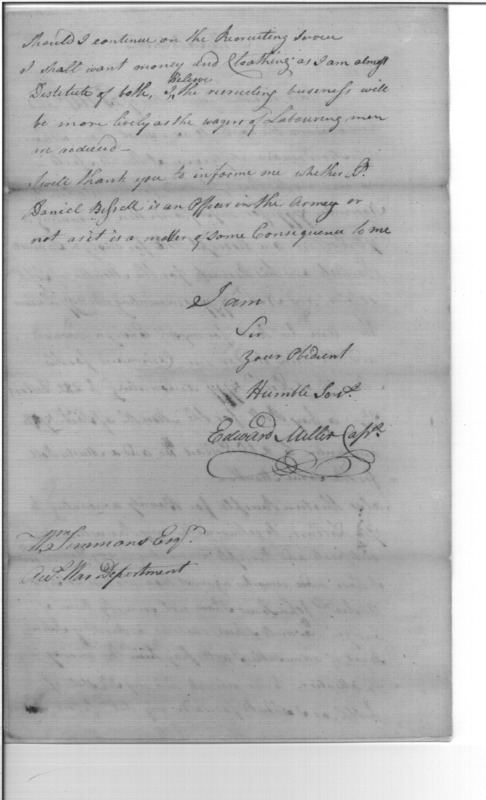 Should I continue on the Recruiting Service
I shall want money and Cloathing as I am almost
Distitute of both, I Beleive the recruiting business will
be more lively as the wages of Labouring men
are reduced—
I will thank you to informe me whether
Daniel Bissell is an Officer in the Army or
not as it is a matter of some Consequence to me
I am
Sir
Your Obedient
Humble Servt.
Edward Miller Capt.
Wm Simmons Esqr.
Acct. War Department